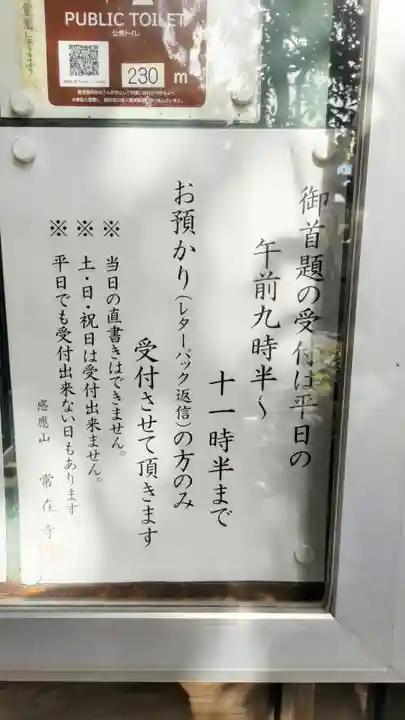 PUBLIC TOILET
公衆トイレ
230 m
御首題の受付は平日の
午前九時半〜
十一時半まで
お預かり(レターパック返信)の方のみ
受付させて頂きます
※ 当日の直書きはできません。
※ 土・日・祝日は受付出来ません。
※ 平日でも受付出来ない日もあります
感應山 常在寺